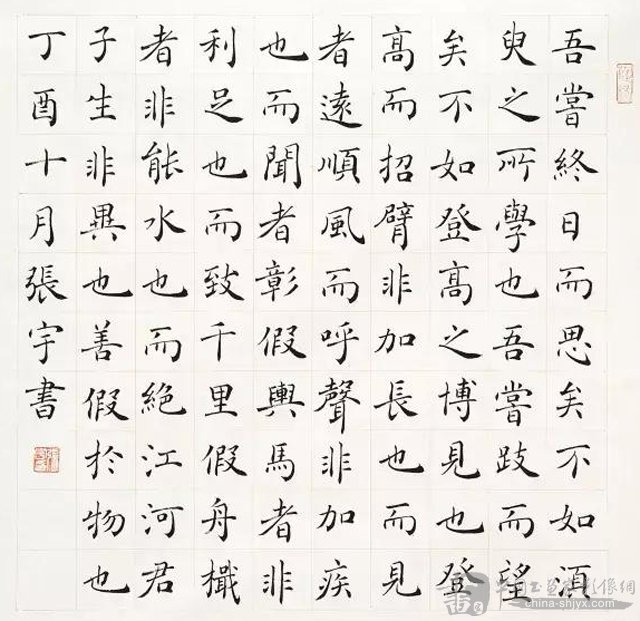 吾嘗終日而思矣不如須
臾之所學也吾嘗跂而望
矣不如登高之博見也登
高而招臂非加長也而見
者遠順風而呼聲非加疾
也而聞者彰假輿馬者非
利足也而致千里假舟檝
者非能水也而絕江河君
子生非異也善假於物也
丁酉十月張宇書
china-shjyx.com